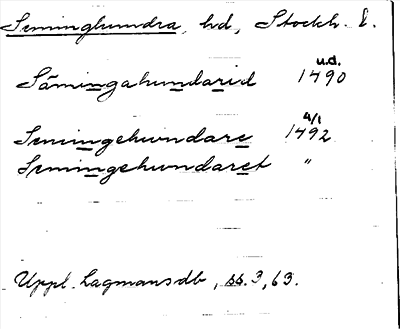 Seminghundra, hd, Stockh. l.
Sämingahundarid 1490 u.d.
Semingehundare 1492 4/1
Semingehundaret "
Uppl. Lagmansdb, ss. 3, 63.